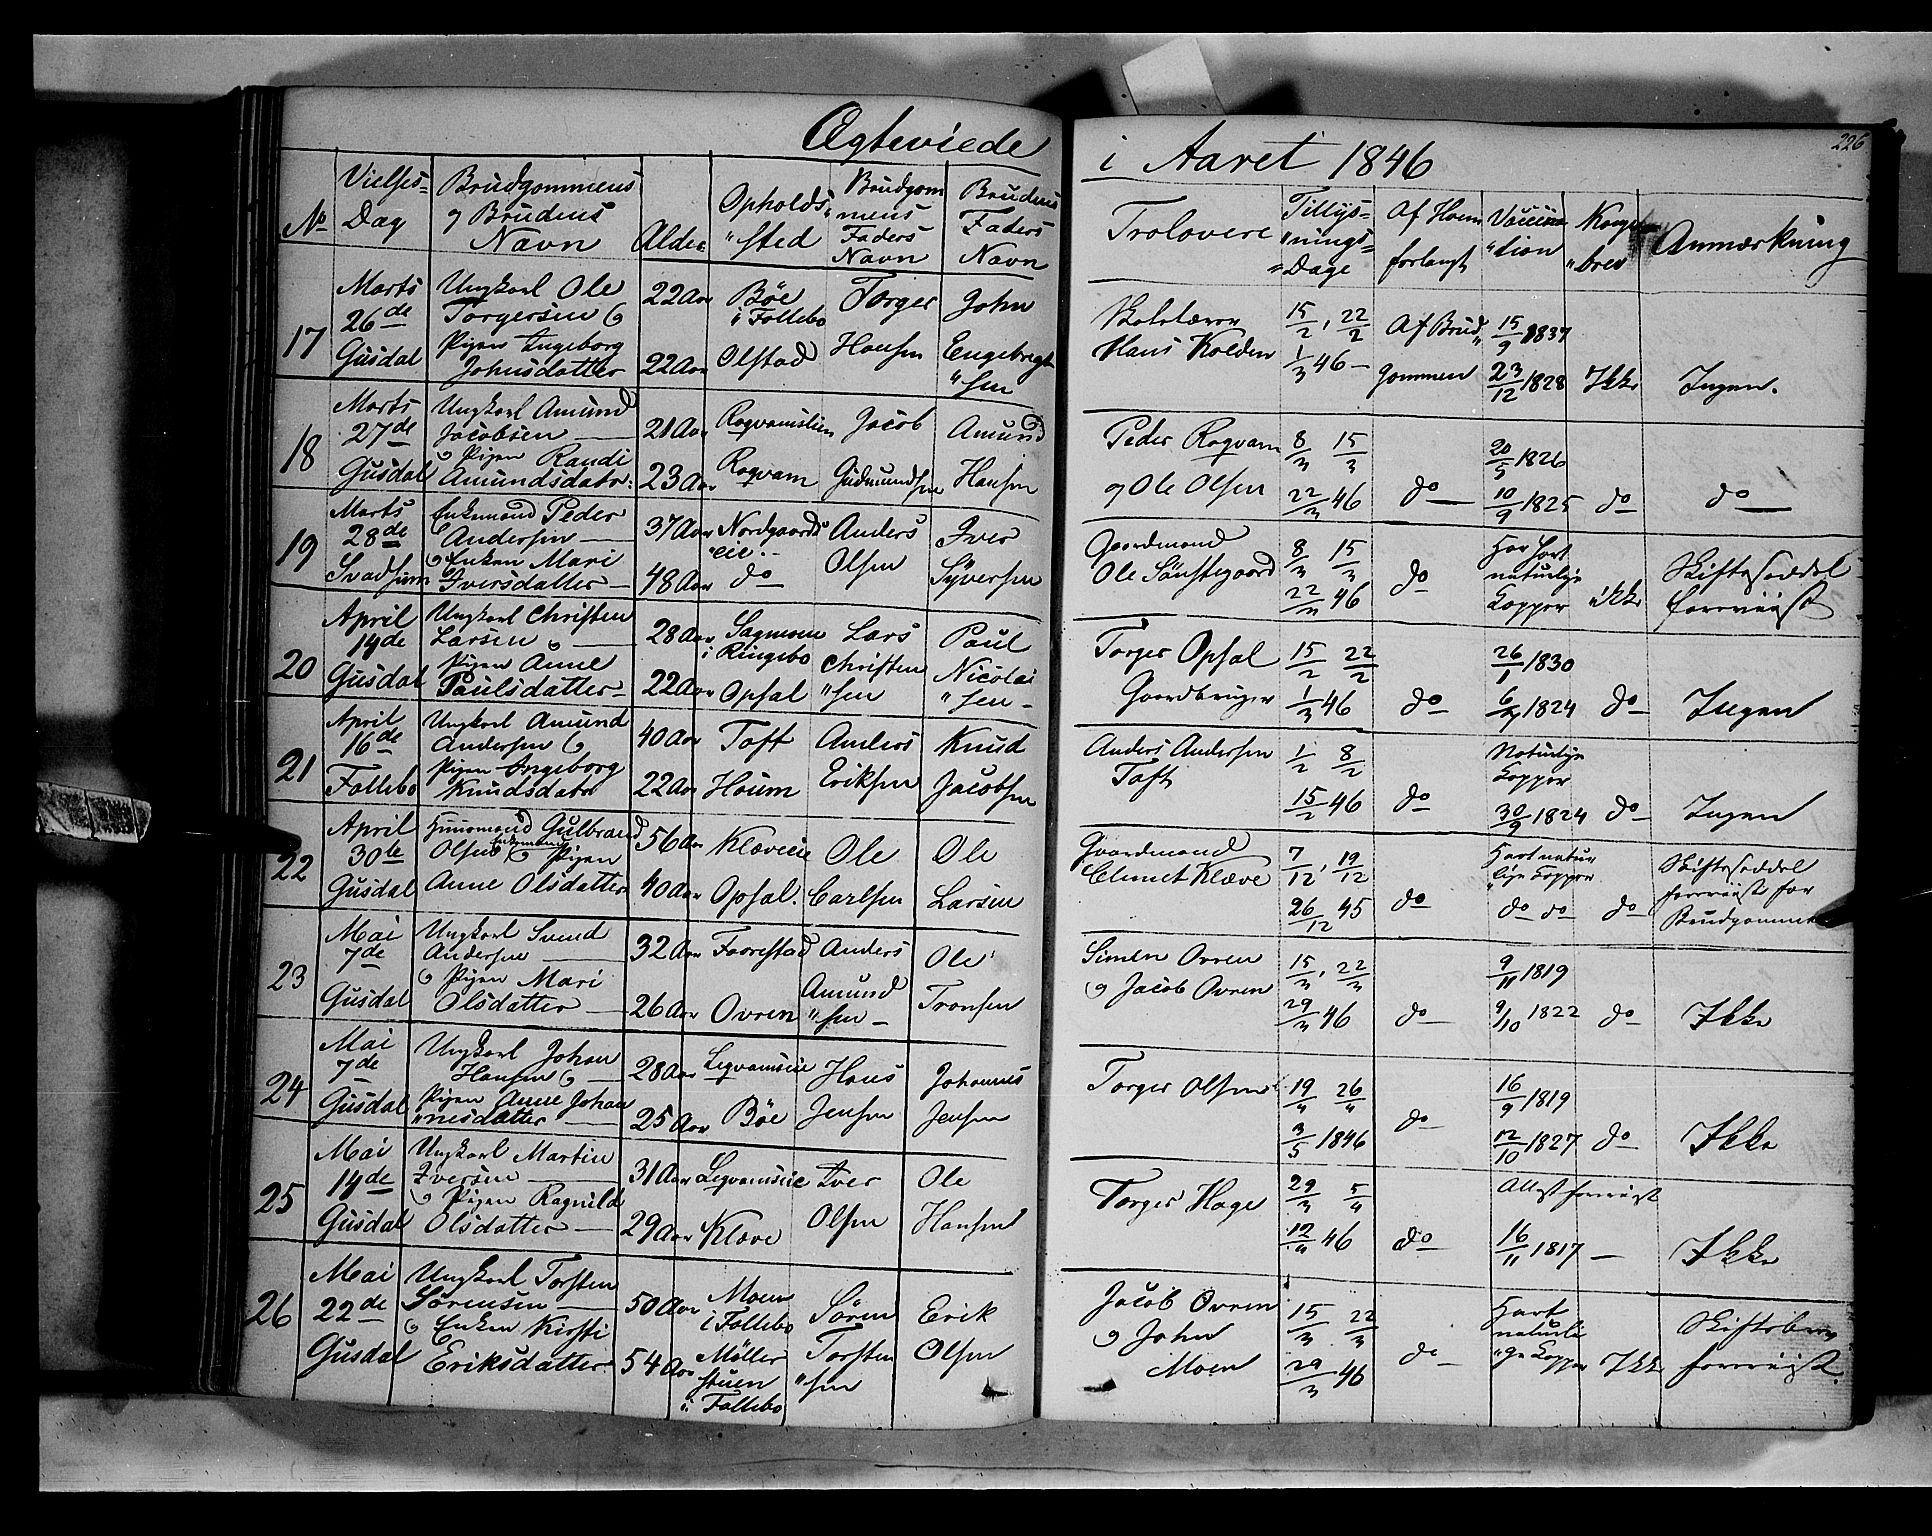 Ægteviede i Aaret 1846
226
No | Vielses-Dag | Brudgommens og Brudens Navn | Alder | Opholds-sted | Brudgommens Faders Navn | Brudens Faders Navn | Trolovere | Tillysnings-Dage | Af Hvem forlangt | Vaccination | Kongebrev | Anmærkning
17 | Marts 26de Gusdal | Ungkarl Ole Torgersen & Pigen Ingeborg Johnsdatter | 22 Aar 22 Aar | Böe i Follebo Olstad | Torger Hansen | John Engebregtsen | Skolelærer Hans Kolden | 15/2, 22/2 1/3 46 | Af Brudgommen | 15/9 1837 23/12 1828 | Ikke | Ingen.
18 | Marts 27de Gusdal | Ungkarl Amund Jacobsen & Pigen Randi Amundsdatr: | 21 Aar 23 Aar | Rogvamslien Rogvam | Jacob Gudmundsen | Amund Hansen | Peder Rogvam og Ole Olsen | 8/3 15/3 22/3 46 | do | 20/5 1826 10/9 1825 | do | do
19 | Marts 28de Svadsum | Enkemand Peder Andersen & Enken Mari Iversdatter | 37 Aar 48 Aar | Nordgaardseie do | Anders Olsen | Iver Syversen | Gaardmand Ole Sønstegaard | 8/3 15/3 22/3 46 | do | Har havt naturlige Kopper | ikke | Skifteseddel foreviist
20 | April 14de Gusdal | Ungkarl Christen Larsen & Pigen Anne Paulsdatter | 28 Aar 22 Aar | i Ringebo Opsal | Lars Christensen | Paul Nicolaisen | Torger Opsal Gaardbruger | 15/2 22/2 1/3 46 | do | 26/1 1830 1824 | do | Ingen
21 | April 16de Follebo | Ungkarl Amund Andersen & Pigen Ingeborg Knudsdatr | 40 Aar 22 Aar | Toft Houm | Anders Eriksen | Knud Jacobsen | Anders Andersen Toft | 1/2 8/2 15/2 46 | do | Naturlige Kopper 30/9 1824 | do | Ingen
22 | April 30te Gusdal | Huusmand Gulbrand Olsen Enkemand & Pigen Anne Olsdatter | 56 Aar 40 Aar | Klæveeie Opsal. | Ole Carlsen | Ole Larsen | Gaardmand Clemet Klæve | 7/12, 19/12 26/12 45 | do | Havt naturlige Kopper do do | do | Skifteseddel foreviist for Brudgommen
23 | Mai 7de Gusdal | Ungkarl Svend Andersen & Pigen Mari Olsdatter | 32 Aar 26 Aar | Faarestad Ovren | Anders Amundsen | Ole Tronsen | Simen Ovren & Jacob Ovren | 15/3, 22/3 29/3 46 | do | 9/11 1819 9/10 1822 | do | Ikke
24 | Mai 7de Gusdal | Ungkarl Johan Hansen & Pigen Anne Johannesdatter | 28 Aar 25 Aar | Legvamseie Böe | Hans Jensen | Johannes Jensen | Torger Olsen | 19/4 26/4 3/5 1846 | do | 16/9 1819 12/10 1827 | do | Ikke
25 | Mai 14de Gusdal | Ungkarl Martin Iversen & Pigen Ragnild Olsdatter | 31 Aar 29 Aar | Legvamseie Klæve | Iver Olsen | Ole Hansen | Torger Hage | 29/3 5/4 12/4 46 | do | Attest foreviist 16/11 1817 | — | Ikke
26 | Mai 22de Gusdal | Ungkarl Torsten Sørensen & Enken Kirsti Eriksdatter | 50 Aar 54 Aar | Moen i Follebo Møllerstuen i Follebo | Søren Torstensen | Erik Olsen | Jacob Ovren & John Moen | 15/3 22/3 29/3 46 | do | Havt naturlige Kopper | Ikke | Skiftebrev foreviist.